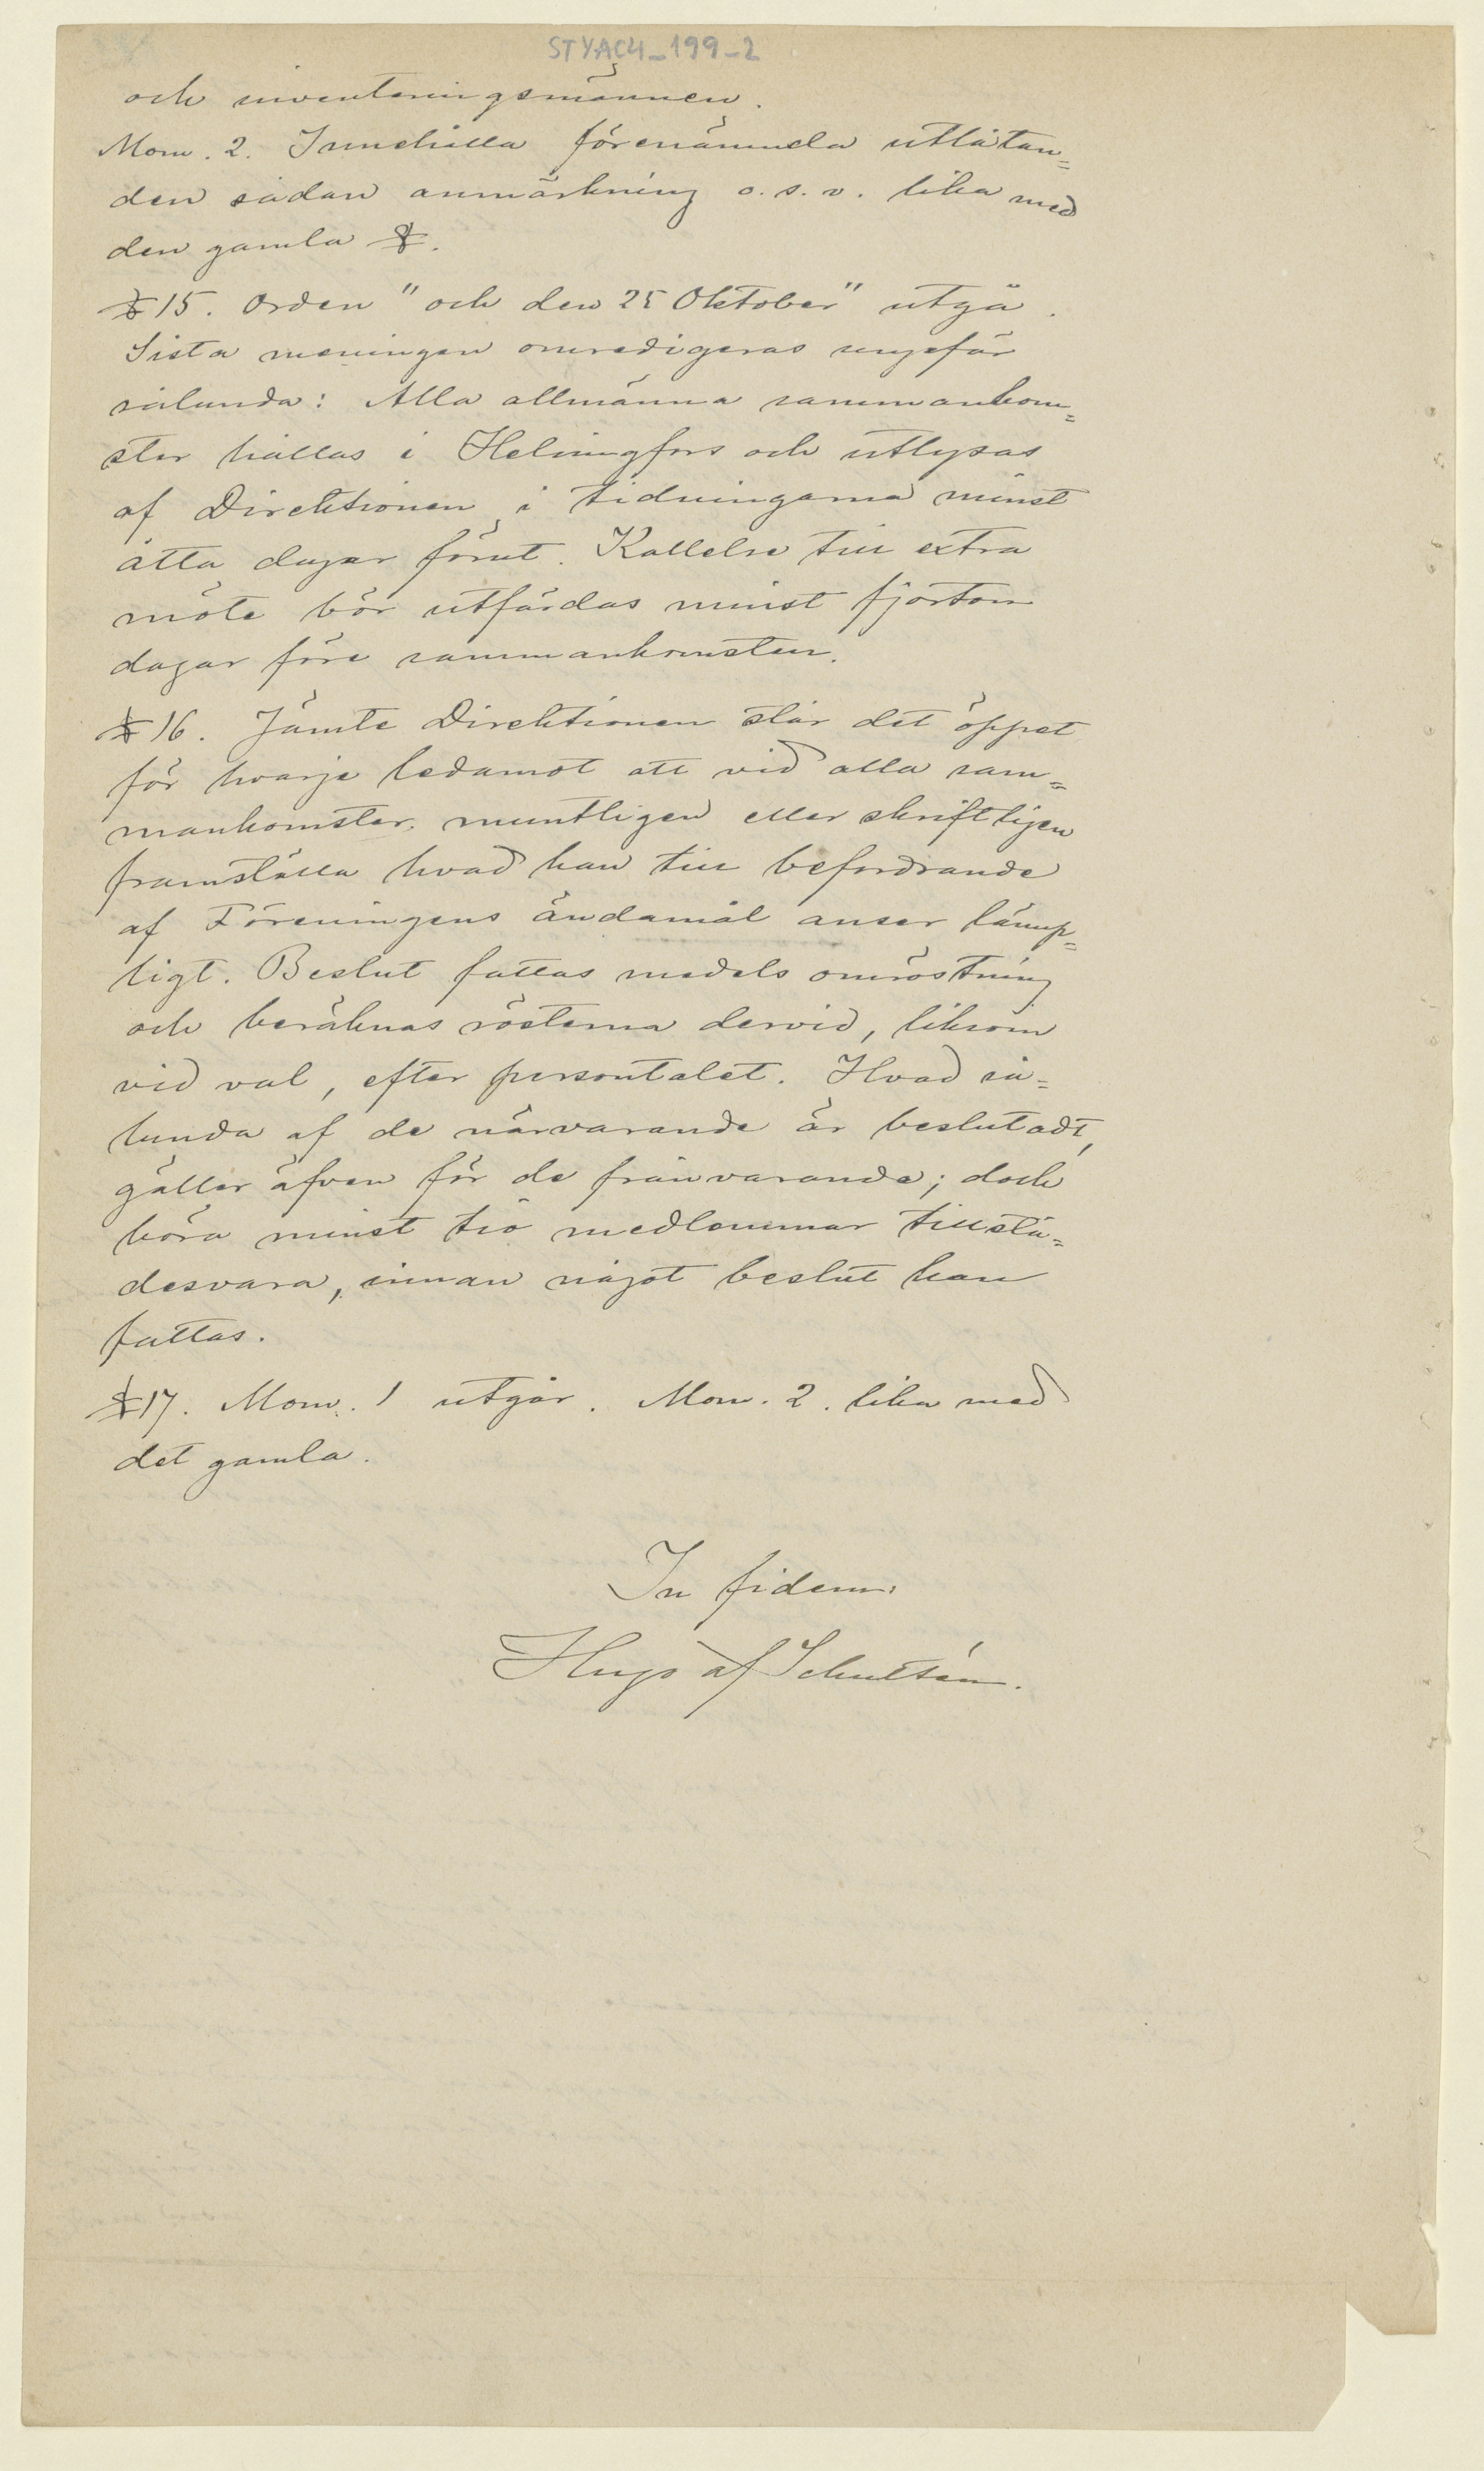 STYAC4_199_2
och inventeringsmännen.
Mom. 2. Innehålla förenämnda utlåtan=
den sådan anmärkning o. s. v. lika med
den gamla §.
§ 15. Orden "och den 25 Oktober" utgå.
Sista meningen omredigeras ungefär
sålunda: Alla allmänna sammankom=
ster hållas i Helsingfors och utlysas
af Direktionen i tidningarna minst
åtta dagar förut. Kallelse till extra
möte bör utfärdas minst fjorton
dagar före sammankomsten.
§ 16. Jämte Direktionen står det öppet
för hvarje ledamot att vid alla sam=
mankomster, muntligen eller skriftligen
framställa hvad han till befordrande
af Föreningens ändamål anser lämp=
ligt. Beslut fattas medels omröstning
och beräknas rösterna dervid, liksom
vid val, efter persontalet. Hvad så=
lunda af de närvarande är beslutadt,
gäller äfven för de frånvarande; dock
böra minst tio medlemmar tillstä=
desvara, innan något beslut kan
fattas.
§ 17. Mom. 1 utgår. Mom. 2. lika med
det gamla.
In fidem:
Hugo af Schultén.